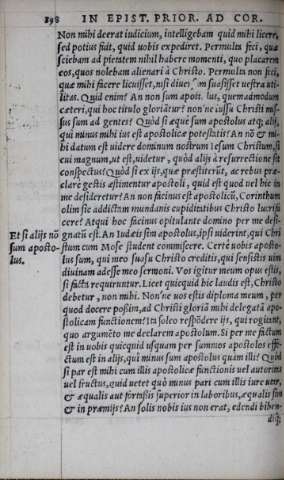 898 IN EPIST. PRIOR. AD COR.
Non mihi deerat iudicium, intelligebam quid mihi licere,
sed potius fiat, quid uobis expediret. Permulta feci, quæ
sciebam ad pietatem nihil habere momenti, quo placarem
eos, quos nolebam alienari à Christo. Permulta non feci,
quæ mihi facere licuisset, nisi aliud suasisset uestra uti-
litas. Quid enim? An non sum apost. lus, quemadmodum
cæteri, qui hoc titulo gloriātur? non ne iussu Christi mis-
sus sum ad gentes? Quòd si æque sum apostolus atq; alij,
qui minus mihi ius est apostolicæ potestatis? An nō & mi-
hi datum est uidere dominum nostrum Iesum Christum, si
cui magnum, ut est, uidetur, quòd alijs à resurrectione sit
conspectus? Quòd si ex ijs, quæ præstiterūt, ac rebus præ-
clare gestis æstimentur apostoli, quid est quod uel hic in
me desideretur? An non facinus est apostolicū, Corinthum
olim sic addictam mundanis cupiditatibus Christo lucrifa
cere? Atqui hoc facinus opitulante domino per me desi-
Et si alijs nō gnatis est. An Iudæis sim apostolus, ipsi uiderint, qui Chri
sum aposto- stum cum Mose student commiscere. Certe uobis aposto-
lus. lus sum, qui meo suasu Christo creditis, qui sensistis uim
diuinam adesse meo sermoni. Vos igitur meum opus estis,
si facta requiruntur. Licet quicquid hic laudis est, Christo
debetur, non mihi. Non'ne uos estis diploma meum, per
quod docere possim, ad Christi gloriā mihi delegatā apo-
stolicam functionem? Ita soleo respōdere ijs, qui rogitant,
quo argumēto me declarem apostolum. Si per me factum
est in uobis quicquid usquam per summos apostolos effe-
ctum est in alijs, qui minus sum apostolus quam illi? Quòd
si par est mihi cum illis apostolicæ functionis uel autoritas
uel fructus, quid uetet quò minus pari cum illis iure utar,
& æqualis aut fortassis superior in laboribus, æqualis sim
& in præmijs? An solis nobis ius non erat, edendi biben-
diq;